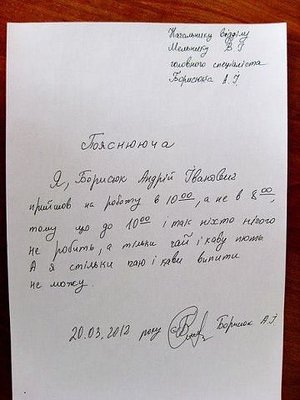 Начальнику відділу
Мельнику В.Г
головного спеціаліста
Борисюка А.І.
Пояснююча
Я, Борисюк Андрій Іванович
прийшов на роботу в 10 00, а не в 8 00,
тому що до 10 00 і так ніхто нічого
не робить, а тільки чай і каву пють.
А я стільки чаю і кави випити
не можу.
20.03.2012 року Борисюк А.І